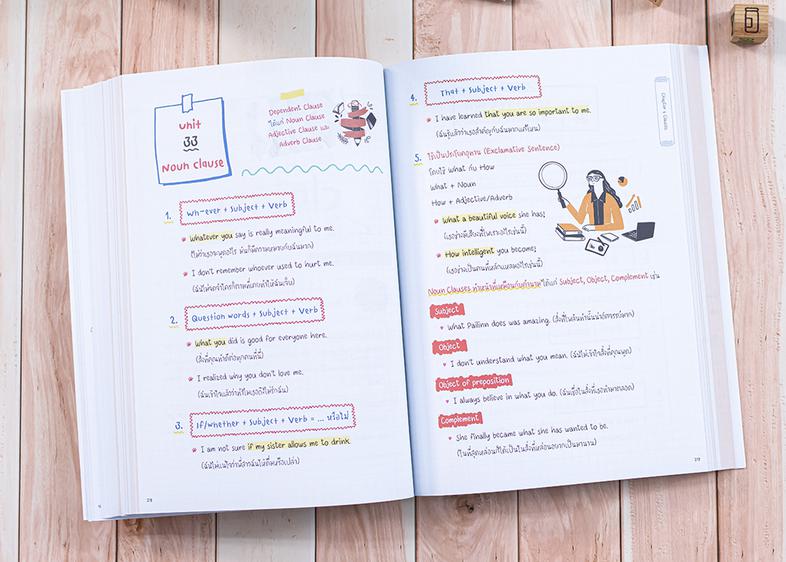 unit
33
Noun Clause
Dependent Clause
ได้แก่ Noun Clause
Adjective Clause และ
Adverb Clause
1. Wh-ever + Subject + Verb
Whatever you say is really meaningful to me.
(ไม่ว่าเธอจะพูดอะไร มันก็มีความหมายกับฉันมาก)
I don't remember whoever used to hurt me.
(ฉันไม่จดจำใครก็ตามที่เคยทำให้ฉันเจ็บ)
2. Question words + Subject + Verb
What you did is good for everyone here.
(สิ่งที่คุณทำดีต่อทุกคนที่นี่)
I realized why you don't love me.
(ฉันเข้าใจแล้วว่าทำไมเธอถึงไม่รักฉัน)
3. If/whether + Subject + Verb = ... หรือไม่
I am not sure if my sister allows me to drink.
(ฉันไม่แน่ใจว่าพี่สาวฉันให้ดื่มหรือเปล่า)
4. That + Subject + Verb
I have learned that you are so important to me.
(ฉันรู้แล้วว่าเธอสำคัญกับฉันมากแค่ไหน)
5. ใช้เป็นประโยคอุทาน (Exclamative Sentence)
โดยใช้ What กับ How
What + Noun
How + Adjective/Adverb
What a beautiful voice she has!
(เธอช่างมีเสียงที่ไพเราะอะไรเช่นนี้)
How intelligent you become!
(เธอช่างเป็นคนที่หลักแหลมอะไรเช่นนี้)
Noun Clauses ทำหน้าที่เหมือนกับคำนาม ได้แก่ Subject, Object, Complement เช่น
Subject
What Pailinn does was amazing. (สิ่งที่ไพลินทำนั้นน่าอัศจรรย์มาก)
Object
I don't understand what you mean. (ฉันไม่เข้าใจสิ่งที่คุณพูด)
Object of preposition
I always believe in what you do. (ฉันเชื่อในสิ่งที่เธอทำมาตลอด)
Complement
She finally became what she has wanted to be.
(ในที่สุดหล่อนก็ได้เป็นในสิ่งที่หล่อนอยากเป็นมานาน)